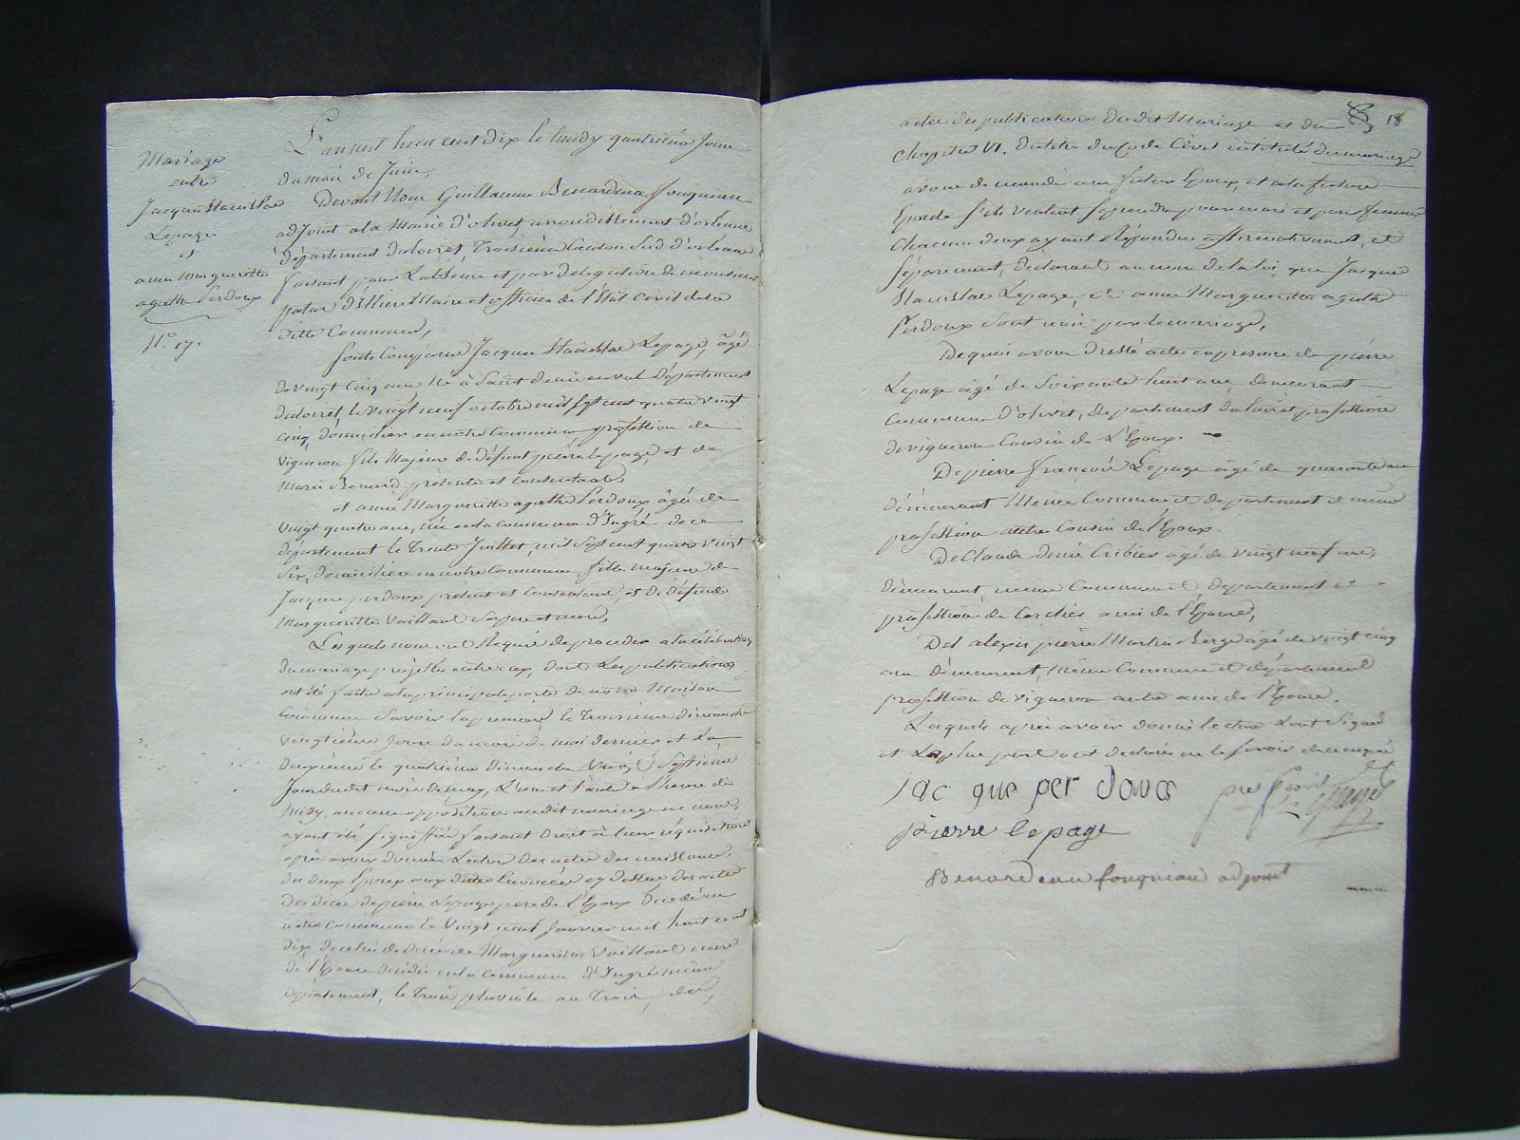 Mariage
entre
Jacques Stanislas
Lepage
et
anne margueritte
agathe Perdoux
N.º 17.
L'an mil huit cent dix le lundy quatrième Jour
du mois de Juin,
Devant Nous Guillaume Benardeau fougniau
adjoint a la Mairie d'olivet arrondissement d'orleans
département du loiret, Troisième Canton Sud d'orleans
faisant pour L'absence et par délégation de monsieur
maire et officier de l'État Civil de la
ditte Commune,
Sont Comparus Jacques Stanislas Lepage, âgé
de vingt cinq ans Né à Saint denis en val département
du loiret, le vingt neuf octobre mil sept cent quatre vingt
cinq, domicilier en notre Commune profession de
vigneron fils Majeur de défunt pierre lepage, et de
Marie Benard, présente et Consentante
et anne Margueritte agathe Perdoux, âgée de
vingt quatre ans, née en la Commune d'Ingré de ce
département le Trente Juillet, mil sept cent quatre vingt
Six, domiciliée en notre Commune fille majeure de
Jacques perdoux présent et Consentant, et de défunte
Margueritte Vaillant Ses pere et mere,
Lesquels nous ont Requis de proceder a la célébration
du mariage projetté entre eux, dont les publications
ont été faites a la principale porte de notre Maison
Commune Savoir la premiere le Troisieme dimanche
vingtième Jour du mois de mai dernier et La
deuxieme le quatrième dimanche Vingt Septième
Jour dudit mois de may, L'une et l'autre a l'heure de
midy, aucune opposition audit mariage ne nous
ayant été Signiffiée faisant Droit à leur réquisition
après avoir donné Lecture des actes de naissances
des deux Epoux aux dates Enoncées cy dessus des actes
des décès de pierre Lepage pere de L'Epoux Décédé en
notre Commune le Vingt neuf Janvier mil huit cent
dix de celui de décès de Margueritte Vaillant mere
de l'Epouse décédée en la Commune d'Ingré même
département, le Trois pluviôse an Trois, des
18
actes de publications dudit Mariage et du
Chapitre VI. du titre du Code Civil intitulé du mariage
avons demandé au futur Epoux, et a la future
Epouse S'ils veulent Se prendre pour mari et pour femme
Chacun d'eux ayant Répondu affirmativement, et
Séparement, déclarons au nom de la loi que Jacques
Stanislas Lepage, et anne Margueritte agathe
Perdoux Sont unis par le mariage,
De quoi avons dressé acte en presence de pierre
Lepage âgé de Soixante huit ans demeurant
Commune d'olivet, département du loiret profession
de vigneron Cousin de L'Epoux.
De pierre françois Lepage âgé de quarante ans
démeurant Même Commune et département et même
profession autre Cousin de l'Epoux.
De Claude denis Cribier âgé de vingt neuf ans,
démeurant, même Commune et département et
profession de Cordier ami de l'Epouse,
Et alexis pierre Martin âgé de vingt cinq
ans démeurant, Même Commune et département
profession de vigneron autre ami de l'Epouse.
Lesquels après avoir donné lecture L'ont Signé
et La plus part ont déclarés ne le Savoir de ce enquis
jac que per doux
pierre lepage
Benardeau fougniau adjoint